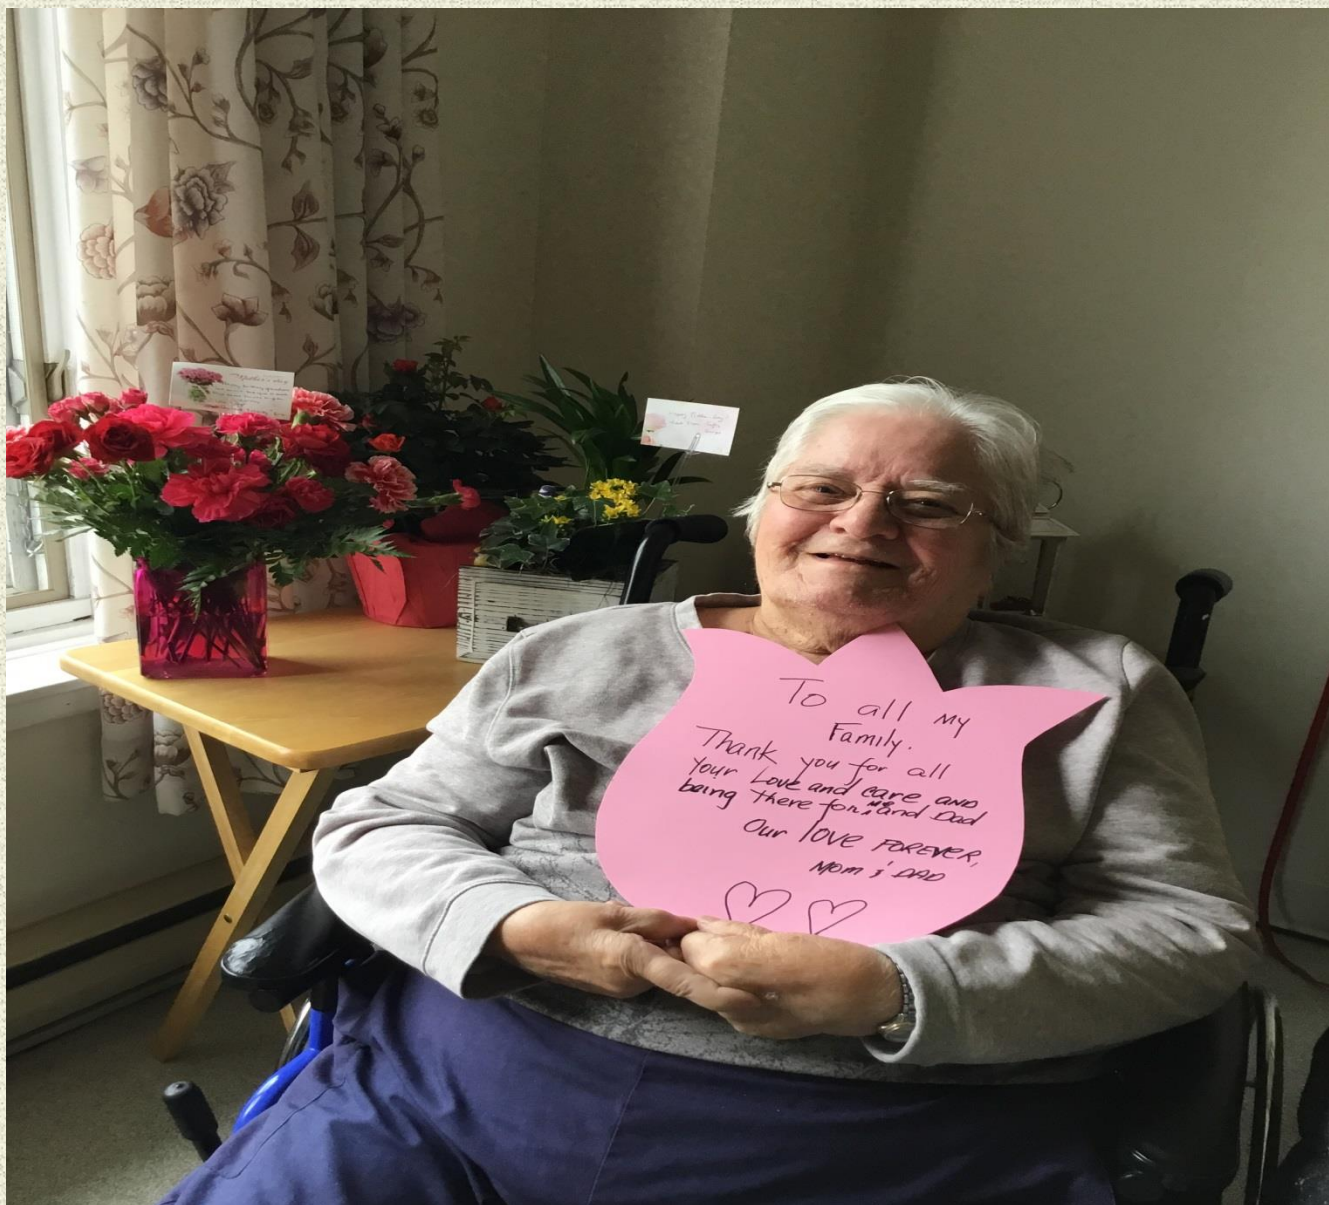 Mother's Day
To all my
Family.
Thank you for all
Your Love and care AND
being there for me and Dad
Our love FOREVER,
MOM & DAD